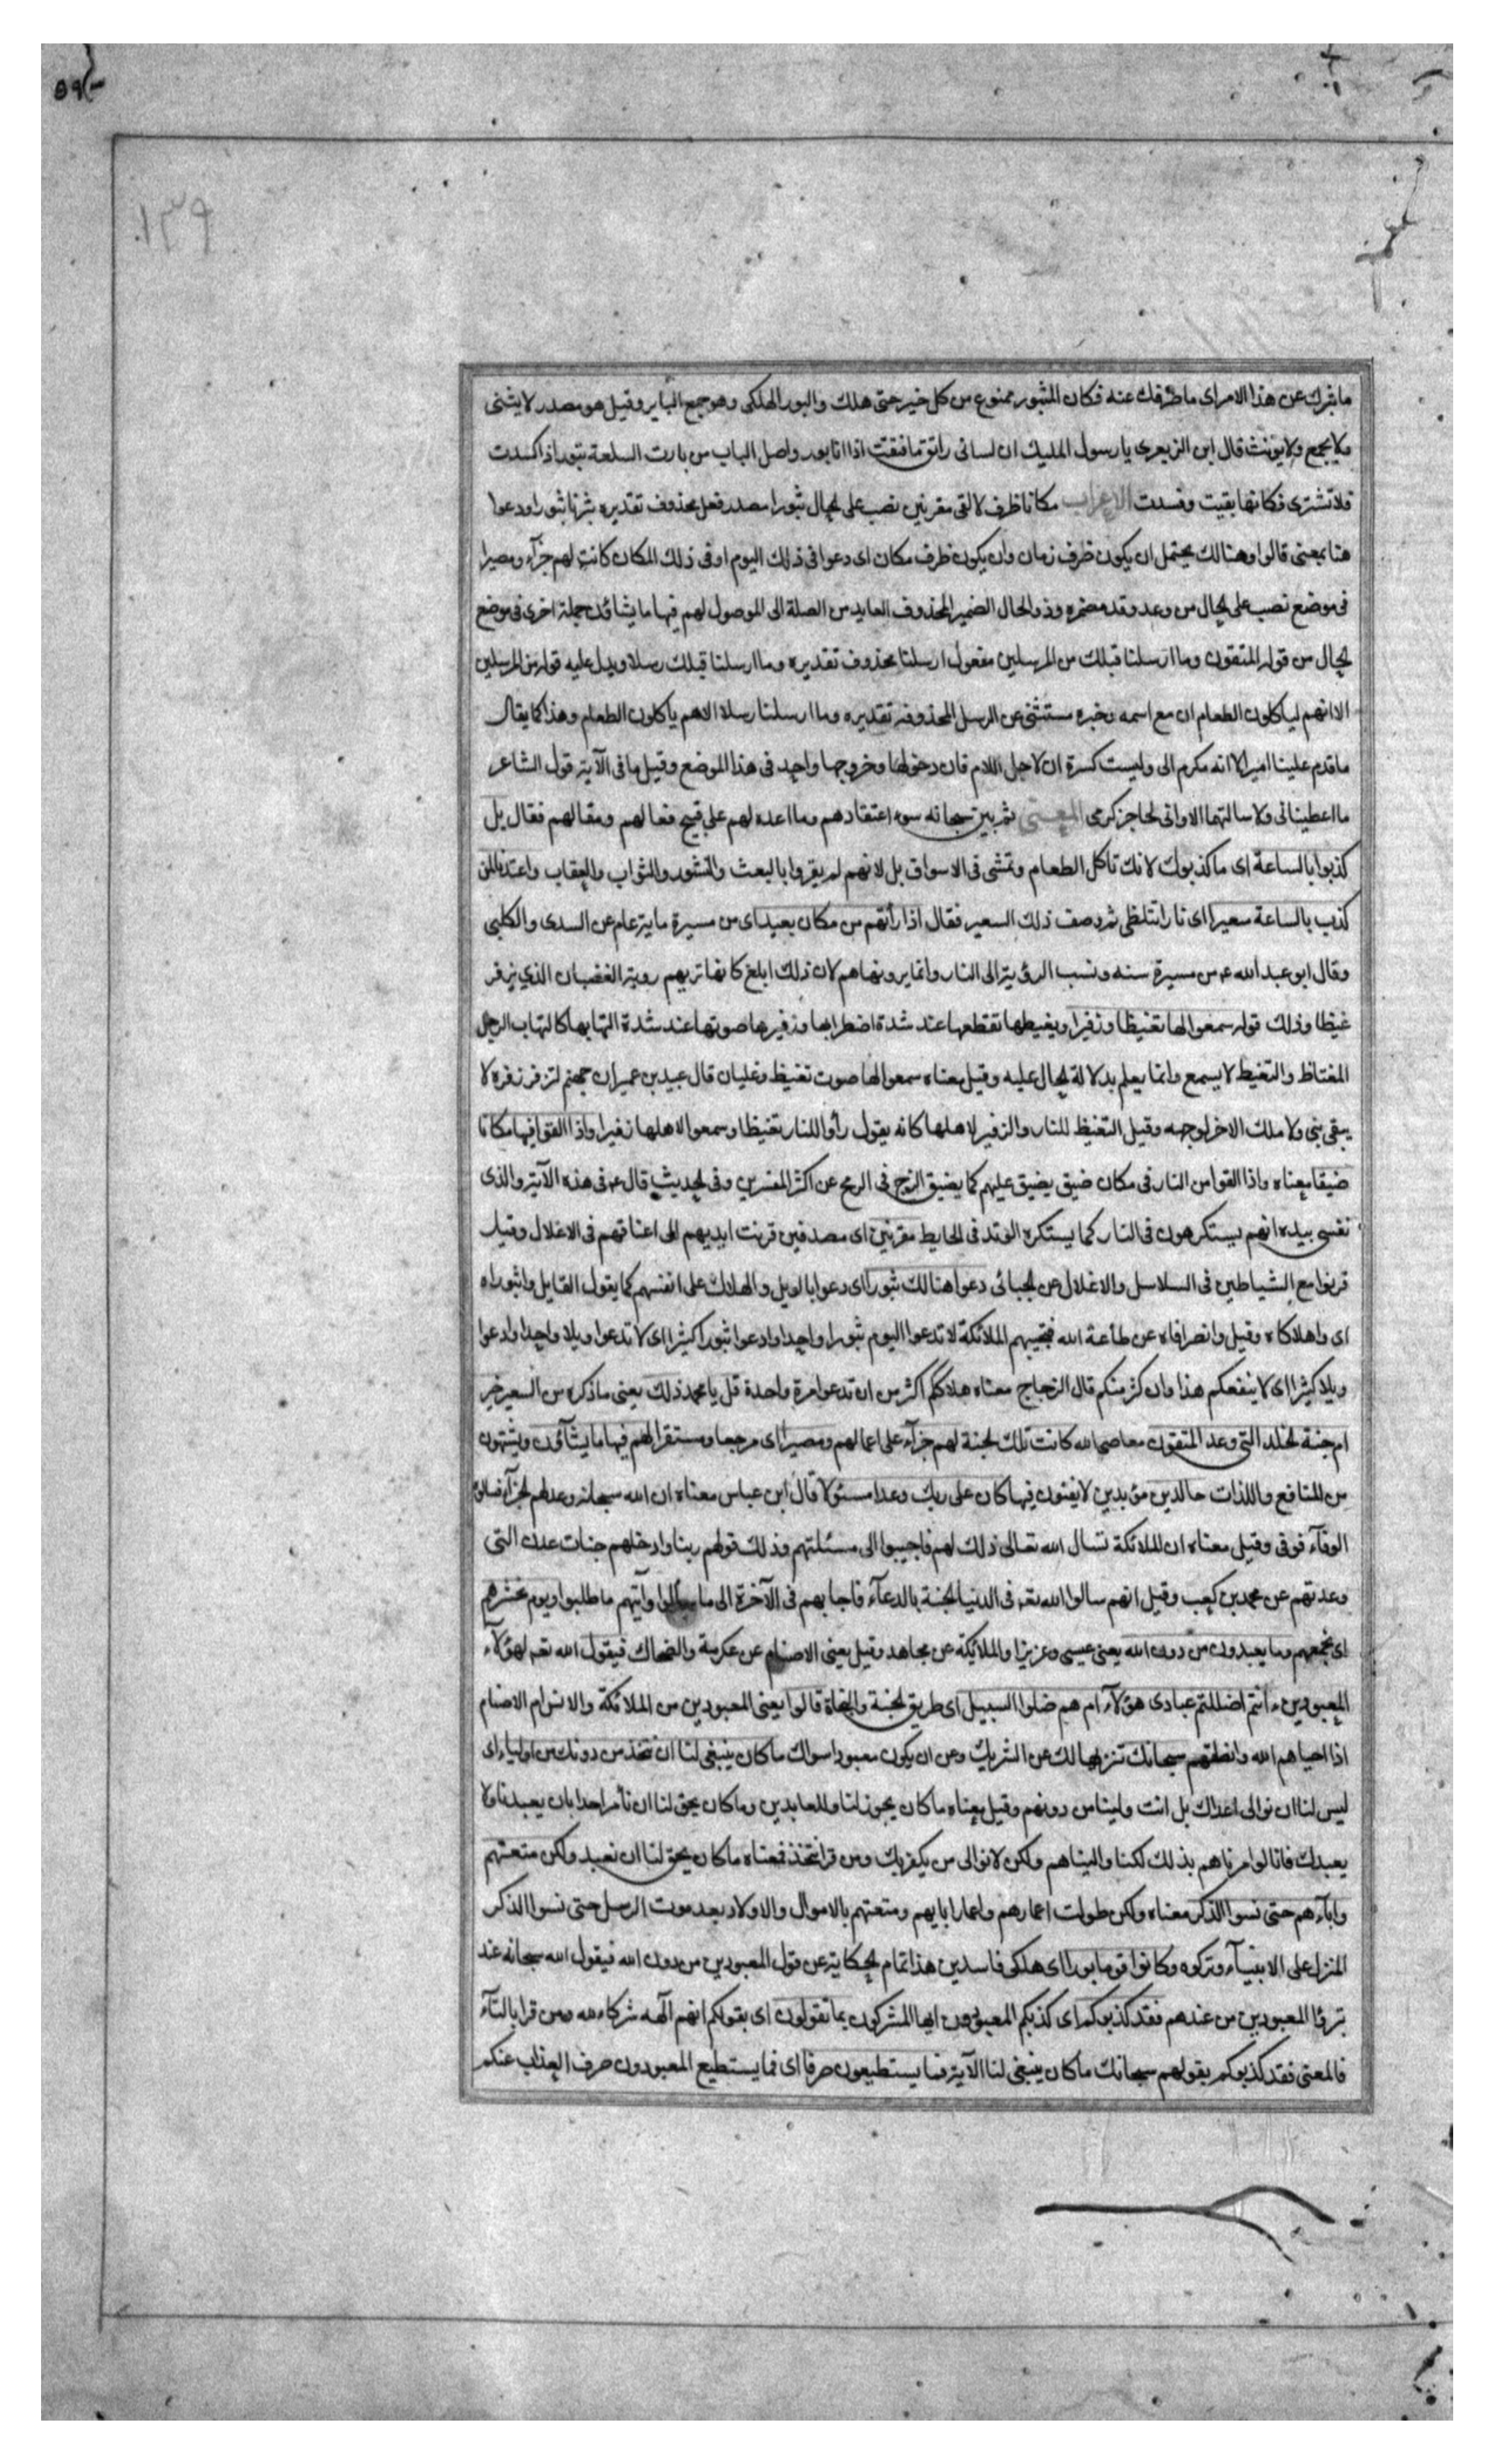 ما ثبرك عن هذا الامر اى ما صرفك عنه فكان المثبور ممنوع من كل خير حتى هلك والبور الهلكى وهو جمع الباير وقيل هو مصدر لا يثنى
ولا يجمع ولا يونث قال ابن الزبعرى يا رسول المليك ان لسانى راتق ما فتقت اذ انا بور واصل الباب من بارت السلعة تبور اذا كسدت
فلا تشترى فكانها بقيت وفسدت الاعراب مكانا ظرف لالقى مقرنين نصب على الحال ثبورا مصدر فعل محذوف تقديره ثبرنا ثبورا ودعوا
هنا بمعنى قالوا وهنالك يحتمل ان يكون ظرف زمان وان يكون ظرف مكان اى دعوا فى ذلك اليوم او فى ذلك المكان كانت لهم جزآء ومصيرا
فى موضع نصب على الحال من وعد وقد مضمره وذو الحال الضمير المحذوف العايد من الصلة الى الموصول لهم فيها ما يشائون جملة اخرى فى موضع
الحال من قوله المتقون وما ارسلنا قبلك من المرسلين مفعول ارسلنا محذوف تقديره وما ارسلنا قبلك رسلا ويدل عليه قوله من المرسلين
الا انهم لياكلون الطعام ان مع اسمه وخبره مستثنى عن الرسل المحذوفه تقديره وما ارسلنا رسلا الا هم ياكلون الطعام وهذا كما يقال
ما قدم علينا امير الا انه مكرم الى وليست كسرة ان لاجل اللام فان دخولها وخروجها واحد فى هذا الموضع وقيل ما فى الآية قول الشاعر
ما اعطيانى ولا سالتهما الا وانى لحاجز كرمى المعنى ثم بين سبحانه سوء اعتقادهم وما اعده لهم على قبيح فعالهم ومقالهم فقال بل
كذبوا بالساعة اى ما كذبوك لانك تاكل الطعام وتمشى فى الاسواق بل لانهم لم يقروا بالبعث والنشور والثواب والعقاب واعتدنا لمن
كذب بالساعة سعيرا اى نارا تتلظى ثم وصف ذلك السعير فقال اذا رأتهم من مكان بعيد اى من مسيرة ماية عام عن السدى والكلبى
وقال ابو عبد الله ع من مسيرة سنه ونسب الرؤية الى النار وانما يرونها هم لان ذلك ابلغ كانها تريهم روية الغضبان الذي يزفر
غيظا وذلك قوله سمعوا لها تغيظا وزفيرا ويغيظها تقطعها عند شدة اضطرابها وزفيرها صوتها عند شدة التهابها كالتهاب الرجل
المغتاظ والتغيظ لا يسمع وانما يعلم بدلالة الحال عليه وقيل معناه سمعوا لها صوت تغيظ وغليان قال عبيد بن عمير ان جهنم لتزفر زفرة لا
يبقى نبى ولا ملك الا خر لوجهه وقيل التغيظ للنار والزفير لاهلها كانه يقول رأوا للنار تغيظا وسمعوا لاهلها زفيرا واذا القوا فيها مكانا
ضيقا معناه واذا القوا من النار فى مكان ضيق يضيق عليهم كما يضيق الزج فى الرمح عن اكثر المفسرين وفى الحديث قال ع فى هذه الآية والذى
نفسى بيده انهم يستكرهون فى النار كما يستكره الوتد فى الحايط مقرنين اى مصفدين قرنت ايديهم الى اعناقهم فى الاغلال وقيل
قرنوا مع الشياطين فى السلاسل والاغلال عن الجبائى دعوا هنالك ثبورا اى دعوا بالويل والهلاك على انفسهم كما يقول القايل واثبوراه
اى واهلاكاه وقيل وانصرافاه عن طاعة الله فتجيبهم الملائكة لا تدعوا اليوم ثبورا واحدا وادعوا ثبورا كثيرا اى لا تدعوا ويلا واحدا وادعوا
ويلا كثيرا اى لا ينفعكم هذا وان كثر منكم قال الزجاج معناه هلاككم اكثر من ان تدعوا مرة واحدة قل يا محمد ذلك يعنى ما ذكره من السعير خير
ام جنة الخلد التى وعد المتقون معاصى الله كانت تلك الجنة لهم جزآء على اعمالهم ومصيرا اى مرجعا ومستقرا لهم فيها ما يشآؤن ويشتهون
من المنافع واللذات خالدين مؤبدين لا يفنون فيها كان على ربك وعدا مسئولا قال ابن عباس معناه ان الله سبحانه وعد لهم الجزآء فسالوه
الوفآء فوفى وقيل معناه ان الملائكة تسال الله تعالى ذلك لهم فاجيبوا الى مسئلتهم وذلك قولهم ربنا وادخلهم جنات عدن التى
وعدتهم عن محمد بن كعب وقيل انهم سالوا الله تعه فى الدنيا الجنة بالدعآء فاجابهم فى الآخرة الى ما سالوا وآتيهم ما طلبوا ويوم نحشرهم
اى نجمعهم وما يعبدون من دون الله يعنى عيسى وعزيزا والملائكة عن مجاهد وقيل يعنى الاصنام عن عكرمة والضحاك فيقول الله تعه لهؤلآء
المعبودين ءانتم اضللتم عبادى هؤلآء ام هم ضلوا السبيل اى طريق الجنة والنجاة قالوا يعنى المعبودين من الملائكة والانس او الاصنام
اذا احياهم الله وانطقهم سبحانك تنزيها لك عن الشريك وعن ان يكون معبود سواك ما كان ينبغى لنا ان نتخذ من دونك من اولياء اى
ليس لنا ان نوالى اعداك بل انت ولينا من دونهم وقيل معناه ما كان يجوز لنا وللعابدين وما كان يحق لنا ان نأمر احدا بان يعبدنا ولا
يعبدك فانا لو امرناهم بذلك لكنا واليناهم ولكن لا نوالى من يكفر بك ومن قرا نتخذ فمعناه ما كان يحق لنا ان نعبد ولكن متعتهم
وابآءهم حتى نسوا الذكر معناه ولكن طولت اعمارهم واعمار ابايهم ومتعتهم بالاموال والاولاد بعد موت الرسل حتى نسوا الذكر
المنزل على الانبيآء وتركوه وكانوا قوما بورا اى هلكى فاسدين هذا تمام الحكاية عن قول المعبودين من دون الله فيقول الله سبحانه عند
تبرؤا المعبودين من عندهم فقد كذبوكم اى كذبكم المعبودون ايها المشركون بما تقولون اى بقولكم انهم آلهه شركاء لله ومن قرا بالتآء
فالمعنى فقد كذبوكم بقولهم سبحانك ما كان ينبغى لنا الآية فما يستطيعون صرفا اى فما يستطيع المعبودون صرف العذاب عنكم